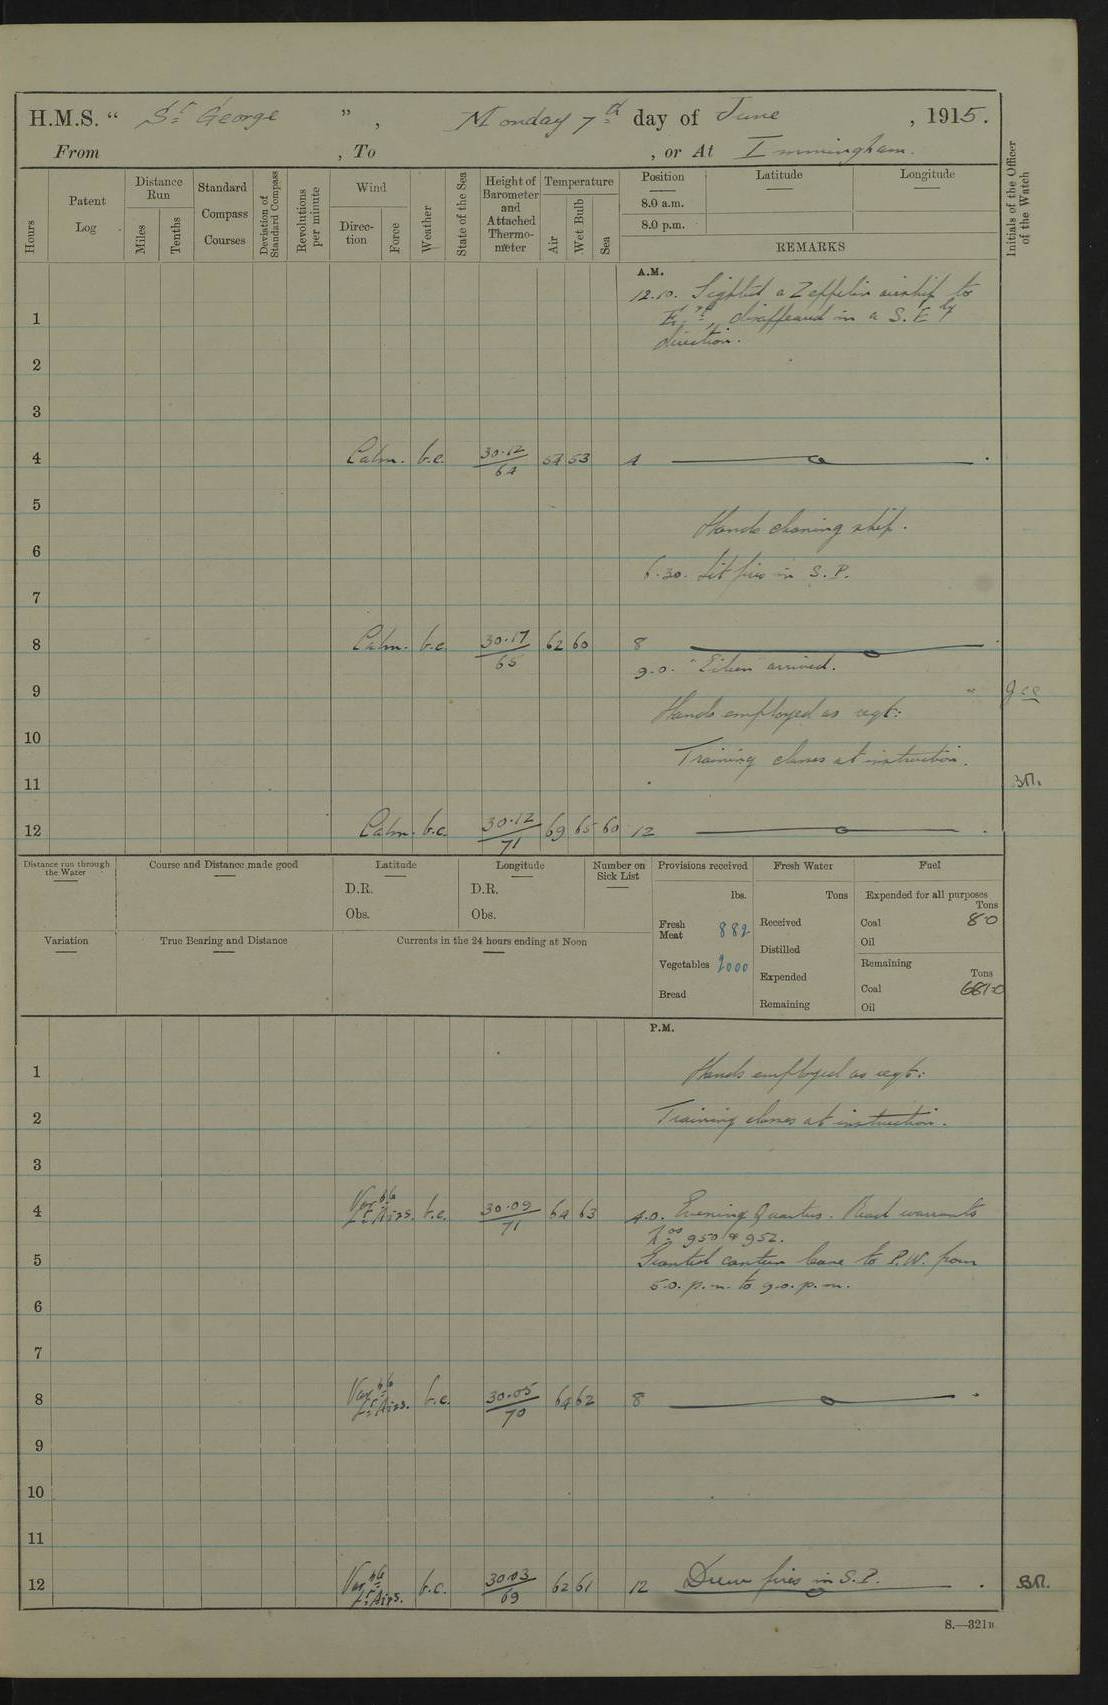 H.M.S. " St George " , Monday 7th day of June , 1915.
From , To , or At Immingham.
Hours
Patent Log
Distance Run
Miles
Tenths
Standard Compass Courses
Deviation of Standard Compass
Revolutions per minute
Wind
Direction
Force
Weather
State of the Sea
Height of Barometer and Attached Thermometer
Temperature
Air
Wet Bulb
Sea
Position
8.0 a.m.
8.0 p.m.
Latitude
Longitude
REMARKS
Initials of the Officer of the Watch
A.M.
12.10. Sighted a Zeppelin airship to
1 disappeared in a S.E ly
direction.
2
3
4 Calm. b.c. 30.12 64 54 53 4
5
Hands cleaning ship.
6
6.30. Lit fires in S.P.
7
8 Calm. b.c. 30.17 65 62 60 8
9.0. "Eileen" arrived.
9
Hands employed as reqt:
10
Training classes at instruction.
11 B.M.
12 Calm. b.c. 30.12 71 69 65 60 12
Distance run through the Water
Course and Distance made good
Latitude
D.R.
Obs.
Longitude
D.R.
Obs.
Number on Sick List
Provisions received
lbs.
Fresh Meat 882
Vegetables 2000
Bread
Fresh Water
Tons
Received
Distilled
Expended
Remaining
Fuel
Expended for all purposes
Tons
Coal 8.0
Oil
Remaining
Tons
Coal 681.0
Oil
Variation
True Bearing and Distance
Currents in the 24 hours ending at Noon
P.M.
1 Hands employed as reqt:
2 Training classes at instruction.
3
4 Var ble Lt Airs. b.c. 30.09 71 64 63 4.0. Evening Quarters. Read warrants
Nos 950 952.
5 Granted canteen leave to P.W. from
5.0. p.m. to 9.0. p.m.
6
7
8 Var ble Lt Airs. b.c. 30.05 70 64 62 8
9
10
11
12 Var ble Lt Airs. b.c. 30.03 69 62 61 12 Drew fires in S.P. B.M.
S.—321B